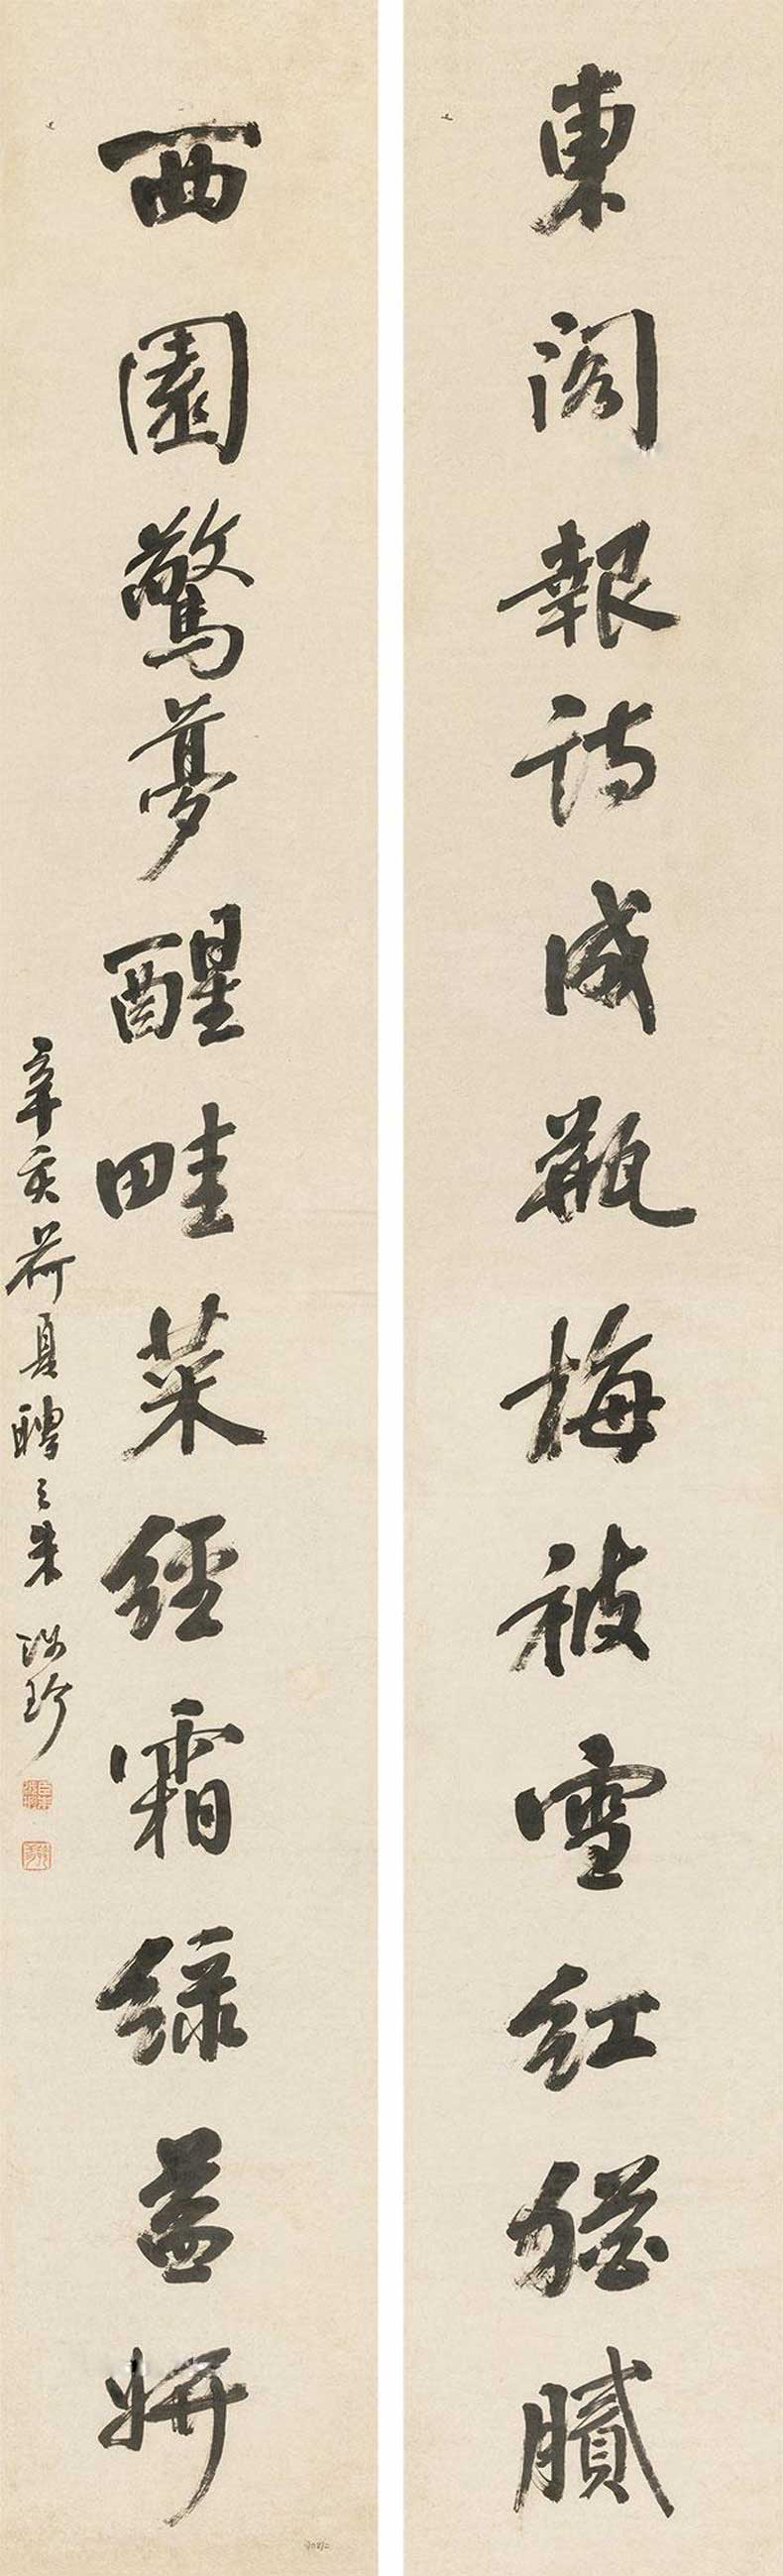 東閣報詩成瓶梅被雪紅猶膩
西園驚夢醒畦菜經霜綠益妍
辛亥荷夏聘三朱汝珍